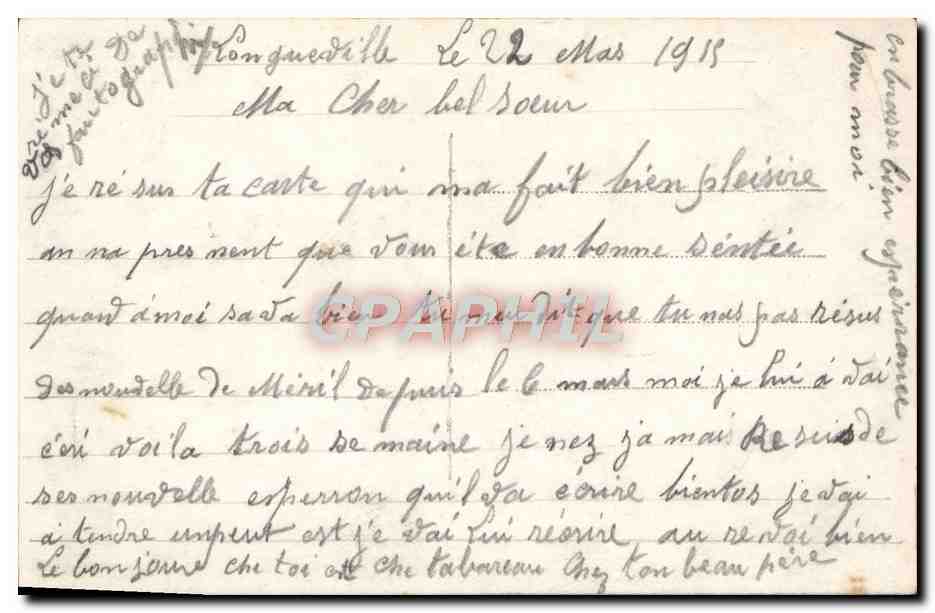 Longueville Le 22 Mas 1915
Ma Cher bel soeur
je ré su ta carte qui ma fait bien pleisire
an na pres nent que vous éte en bonne séntée
quand á moi sa va bien tu mau dit que tu nas pas résus
des nouvelle de Méril depuis le 6 mars moi je lui á vai
écri voila trois se maine je nez ja mais Re suis de
ses nouvelle esperron qu'il va écrire bientos je vai
a tendre unpeut est je vai lui réorire, au re voi bien
Le bonjoure che toi et che tabareau Chez ton beau pére
je te
vré me á De
fautographi
en brasse bien
pour moi
CPAPHIL